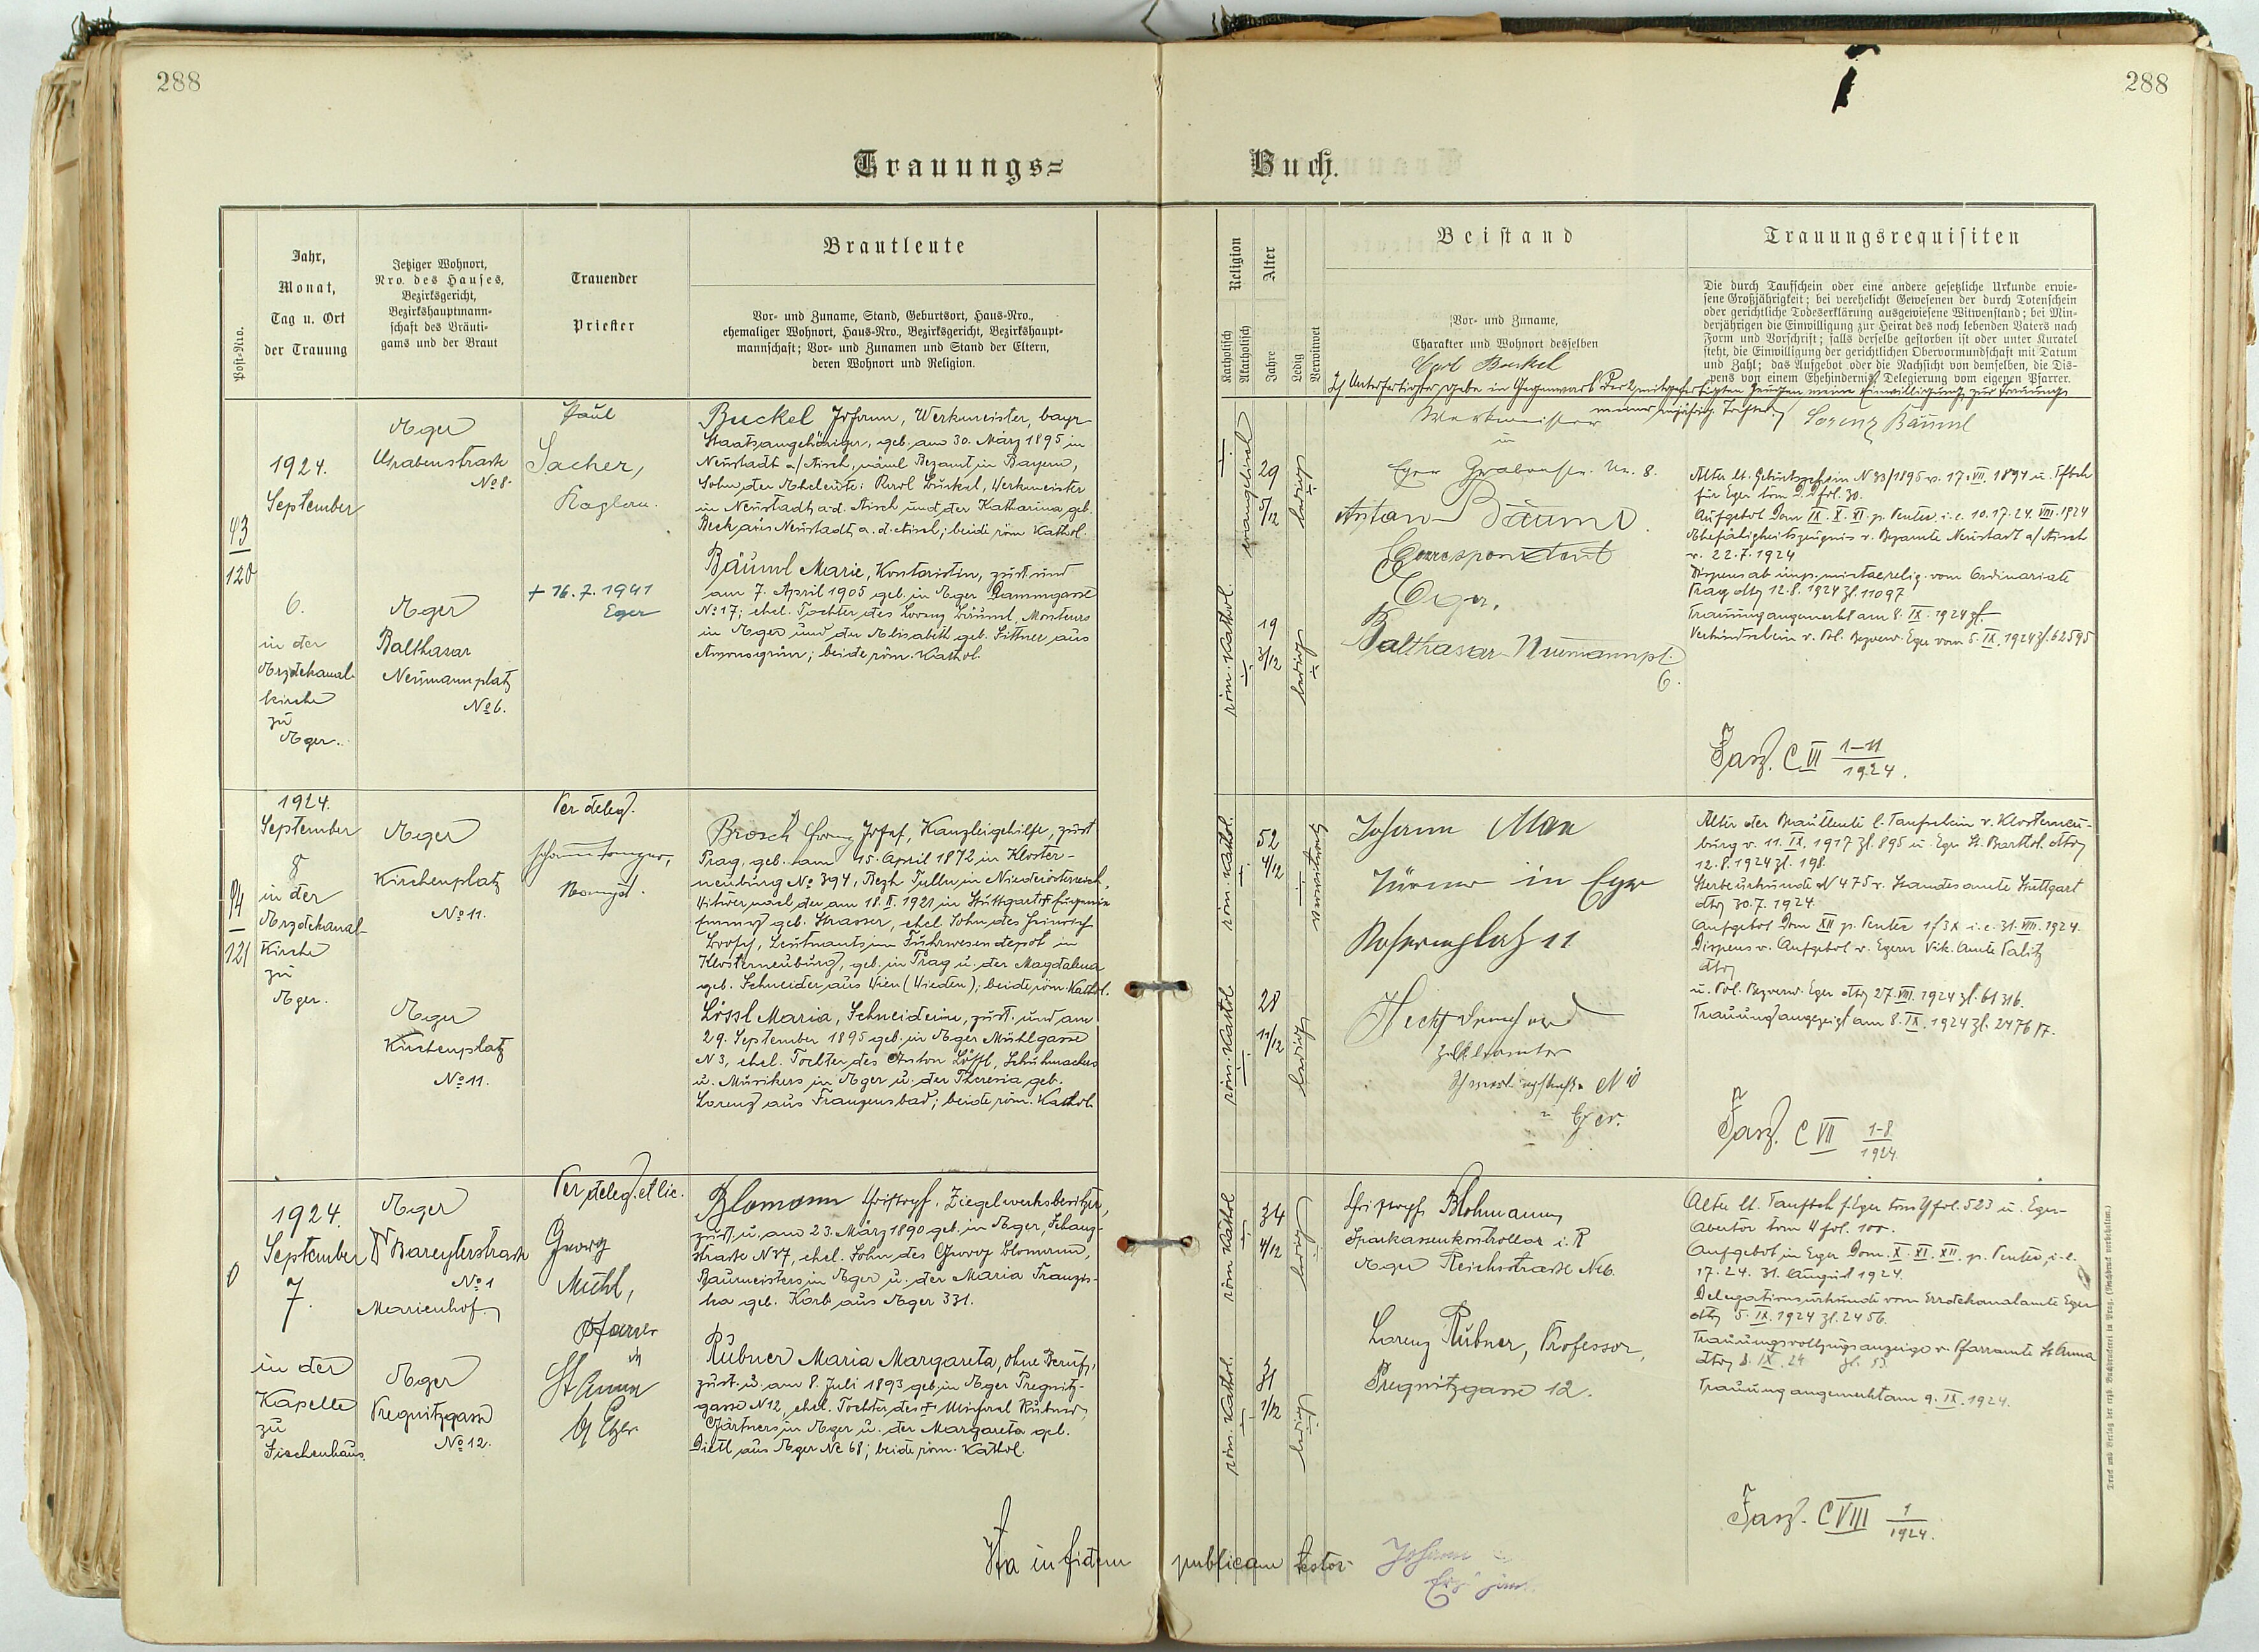 288
288
Trauungs=
Buch.
Post-Nro.
Jahr,
Monat,
Tag u. Ort
der Trauung
Jetziger Wohnort,
Nro. des Hauses,
Bezirksgericht,
Bezirkshauptmann-
schaft des Bräuti-
gams und der Braut
Trauender
Priester
Brautleute
Vor- und Zuname, Stand, Geburtsort, Haus-Nro.,
ehemaliger Wohnort, Haus-Nro., Bezirksgericht, Bezirkshaupt-
mannschaft; Vor- und Zunamen und Stand der Eltern,
deren Wohnort und Religion.
Religion
Katholisch
Akatholisch
Alter
Jahre
Ledig
Verwitwet
Beistand
Vor- und Zuname,
Charakter und Wohnort desselben
Trauungsrequisiten
Die durch Taufschein oder eine andere gesetzliche Urkunde erwie-
sene Großjährigkeit; bei verehelicht Gewesenen der durch Totenschein
oder gerichtliche Todeserklärung ausgewiesene Witwenstand; bei Min-
derjährigen die Einwilligung zur Heirat des noch lebenden Vaters nach
Form und Vorschrift; falls derselbe gestorben ist oder unter Kuratel
steht, die Einwilligung der gerichtlichen Obervormundschaft mit Datum
und Zahl; das Aufgebot oder die Nachsicht von demselben, die Dis-
pens von einem Ehehindernis, Delegierung vom eigenen Pfarrer.
43
120
1924.
September
6.
in der
Erzdekanal-
kirche
zu
Eger.
Eger
Grabenstraße
No 8.
Eger
Balthasar
Neumannplatz
No 6.
Paul
Sacher,
Kaplan.
+ 16.7.1941
Eger
Buckel Johann, Werkmeister, bayr.
Staatsangehöriger, geb. am 30. März 1895 in
Neustadt a/Aisch, Bezamt in Bayern,
Sohn der Eheleute: Karl Buckel, Werkmeister
in Neustadt a.d. Aisch und der Katharina geb.
Beck aus Neustadt a.d. Aisch; beide röm. Kathol.
Bäuml Marie, Kontoristin, zust. und
am 7. April 1905 geb. in Eger Dammgasse
No 17; ehel. Tochter des Lorenz Bäuml, Monteurs
in Eger und der Elisabeth geb. Sittner aus
beide röm. Kathol.
evangelisch
29
5/12
ledig
röm. Kathol.
19
3/12
ledig
Carl Buckel
Ich Unterfertigter gebe in Gegenwart der 2 mitgefertigten Zeugen meine Einwilligung zur Trauung
meiner mjährig. Tochter. Lorenz Bäuml
Werkmeister
in
Eger Grabenstr. Nr. 8.
Anton Bäuml
Correspondent
Eger,
Balthasar Neumannpl.
6.
Alter lt. Geburtsschein N 33/1895 v. 17. VII. 1894 u. Tfbch
für Eger tom fol. 30.
Aufgebot Dom IX. X. XI. p. Pentec. i.e. 10. 17. 24. VIII. 1924
Ehefähigkeitszeugnis v. Bezamte Neustadt a/Aisch
v. 22.7.1924
Dispens ab imp. mixtae relig. vom Ordinariate
Prag dto 12.8.1924 Zl. 11097
Trauung angemerkt am 8. IX. 1924
v. Pol. Bezverw. Eger vom 5. IX. 1924 Zl. 62595
Fasz. C VI 1-11
1924.
94
121
1924.
September
8
in der
Erzdekanal-
Kirche
zu
Eger.
Eger
Kirchenplatz
No 11.
Eger
Kirchenplatz
No 11.
Per deleg.
Brosch Franz Josef, Kanzleigehilfe, zust.
Prag, geb. am 15. April 1872 in Kloster-
neuburg No 394, Bezh Tulln in Niederösterreich,
Witwer nach der am 18. II. 1921 in Stuttgart + Eugenie
geb. Strasser, ehel. Sohn des Heinrich
Brosch, Leutnants im Fuhrwesendepôt in
Klosterneuburg, geb. in Prag u. der Magdalena
geb. Schneider aus Wien (Wieden); beide röm. Kathol.
Lössl Maria, Schneiderin, zust. und am
29. September 1895 geb. in Eger Mühlgasse
N 3, ehel. Tochter des Anton Lössl, Schuhmachers
u. Musikers in Eger u. der Theresia geb.
Lorenz aus Franzensbad; beide röm. Kathol.
röm. Kathol.
52
4/12
verwitwet
röm. Kathol
28
11/12
ledig
Johann Max
Türmer in Eger
11
Zollbeamter
Eger.
Alter der Brautleute l. Taufschein v. Klosterneu-
burg v. 11. IX. 1917 Zl. 895 u. Eger St. Barthol. dto
12.8.1924 Zl. 198.
Sterbeurkunde N 475 v. Standesamte Stuttgart
dto 30.7.1924.
Aufgebot Dom XII p. Pentec 1/3x i.e. 31. VIII. 1924.
Dispens v. Aufgebot v. Egerer Vik. Amte Palitz
dto
u. Pol. Bezverw. Eger dto 27. VIII. 1924 Zl. 61316.
Trauung angezeigt am 8. IX. 1924 Zl. 2476
Fasz. C VII 1-8
1924.
0
1924.
September
7.
in der
Kapelle
zu
Fischerhaus
Eger
Bareytherstraße
No 1
Marienhof
Eger
Pregnitzgasse
No 12.
Per deleg. et lic.
Georg
Mühl,
Pfarrer
in
St Anna
b/ Eger
Blomann Christoph, Ziegelwerksbesitzer,
zust. u. am 23. März 1890 geb. in Eger, Schanz-
straße N 7, ehel. Sohn des Georg Blomann,
Baumeisters in Eger u. der Maria Franzis-
ka geb. Korb aus Eger 331.
Rubner Maria Margareta, ohne Beruf,
zust. u. am 8. Juli 1893 geb. in Eger Pregnitz-
gasse N 12, ehel. Tochter des + Michael Rubner,
Gärtners in Eger u. der Margareta geb.
Dietl aus Eger No 68; beide röm. Kathol.
röm Kathol
34
4/12
ledig
röm. Kathol.
31
1/12
ledig
Christoph Blohmann
Sparkassenkontrollor i. R
Eger Reichsstraße N 6.
Lorenz Rubner, Professor,
Pregnitzgasse 12.
Alter lt. Taufbch f. Eger tom fol. 523 u. Eger-
tom 4 fol. 100.
Aufgebot in Eger Dom. X. XI. XII. p. Pentec, i.e.
17. 24. 31. August 1924.
Delegationsurkunde vom Erzdekanalamte Eger
dto 5. IX. 1924 Zl. 2456.
Trauungsvollzugsanzeige v. Pfarramte St. Anna
dto 8. IX. 24 Zl. 53.
Trauung angemerkt am 9. IX. 1924.
Fasz. C VIII 1
1924.
Ita in fidem publicam testor
Johann
Druck und Verlag der erzb. Buchdruckerei in Prag. (Nachdruck vorbehalten.)